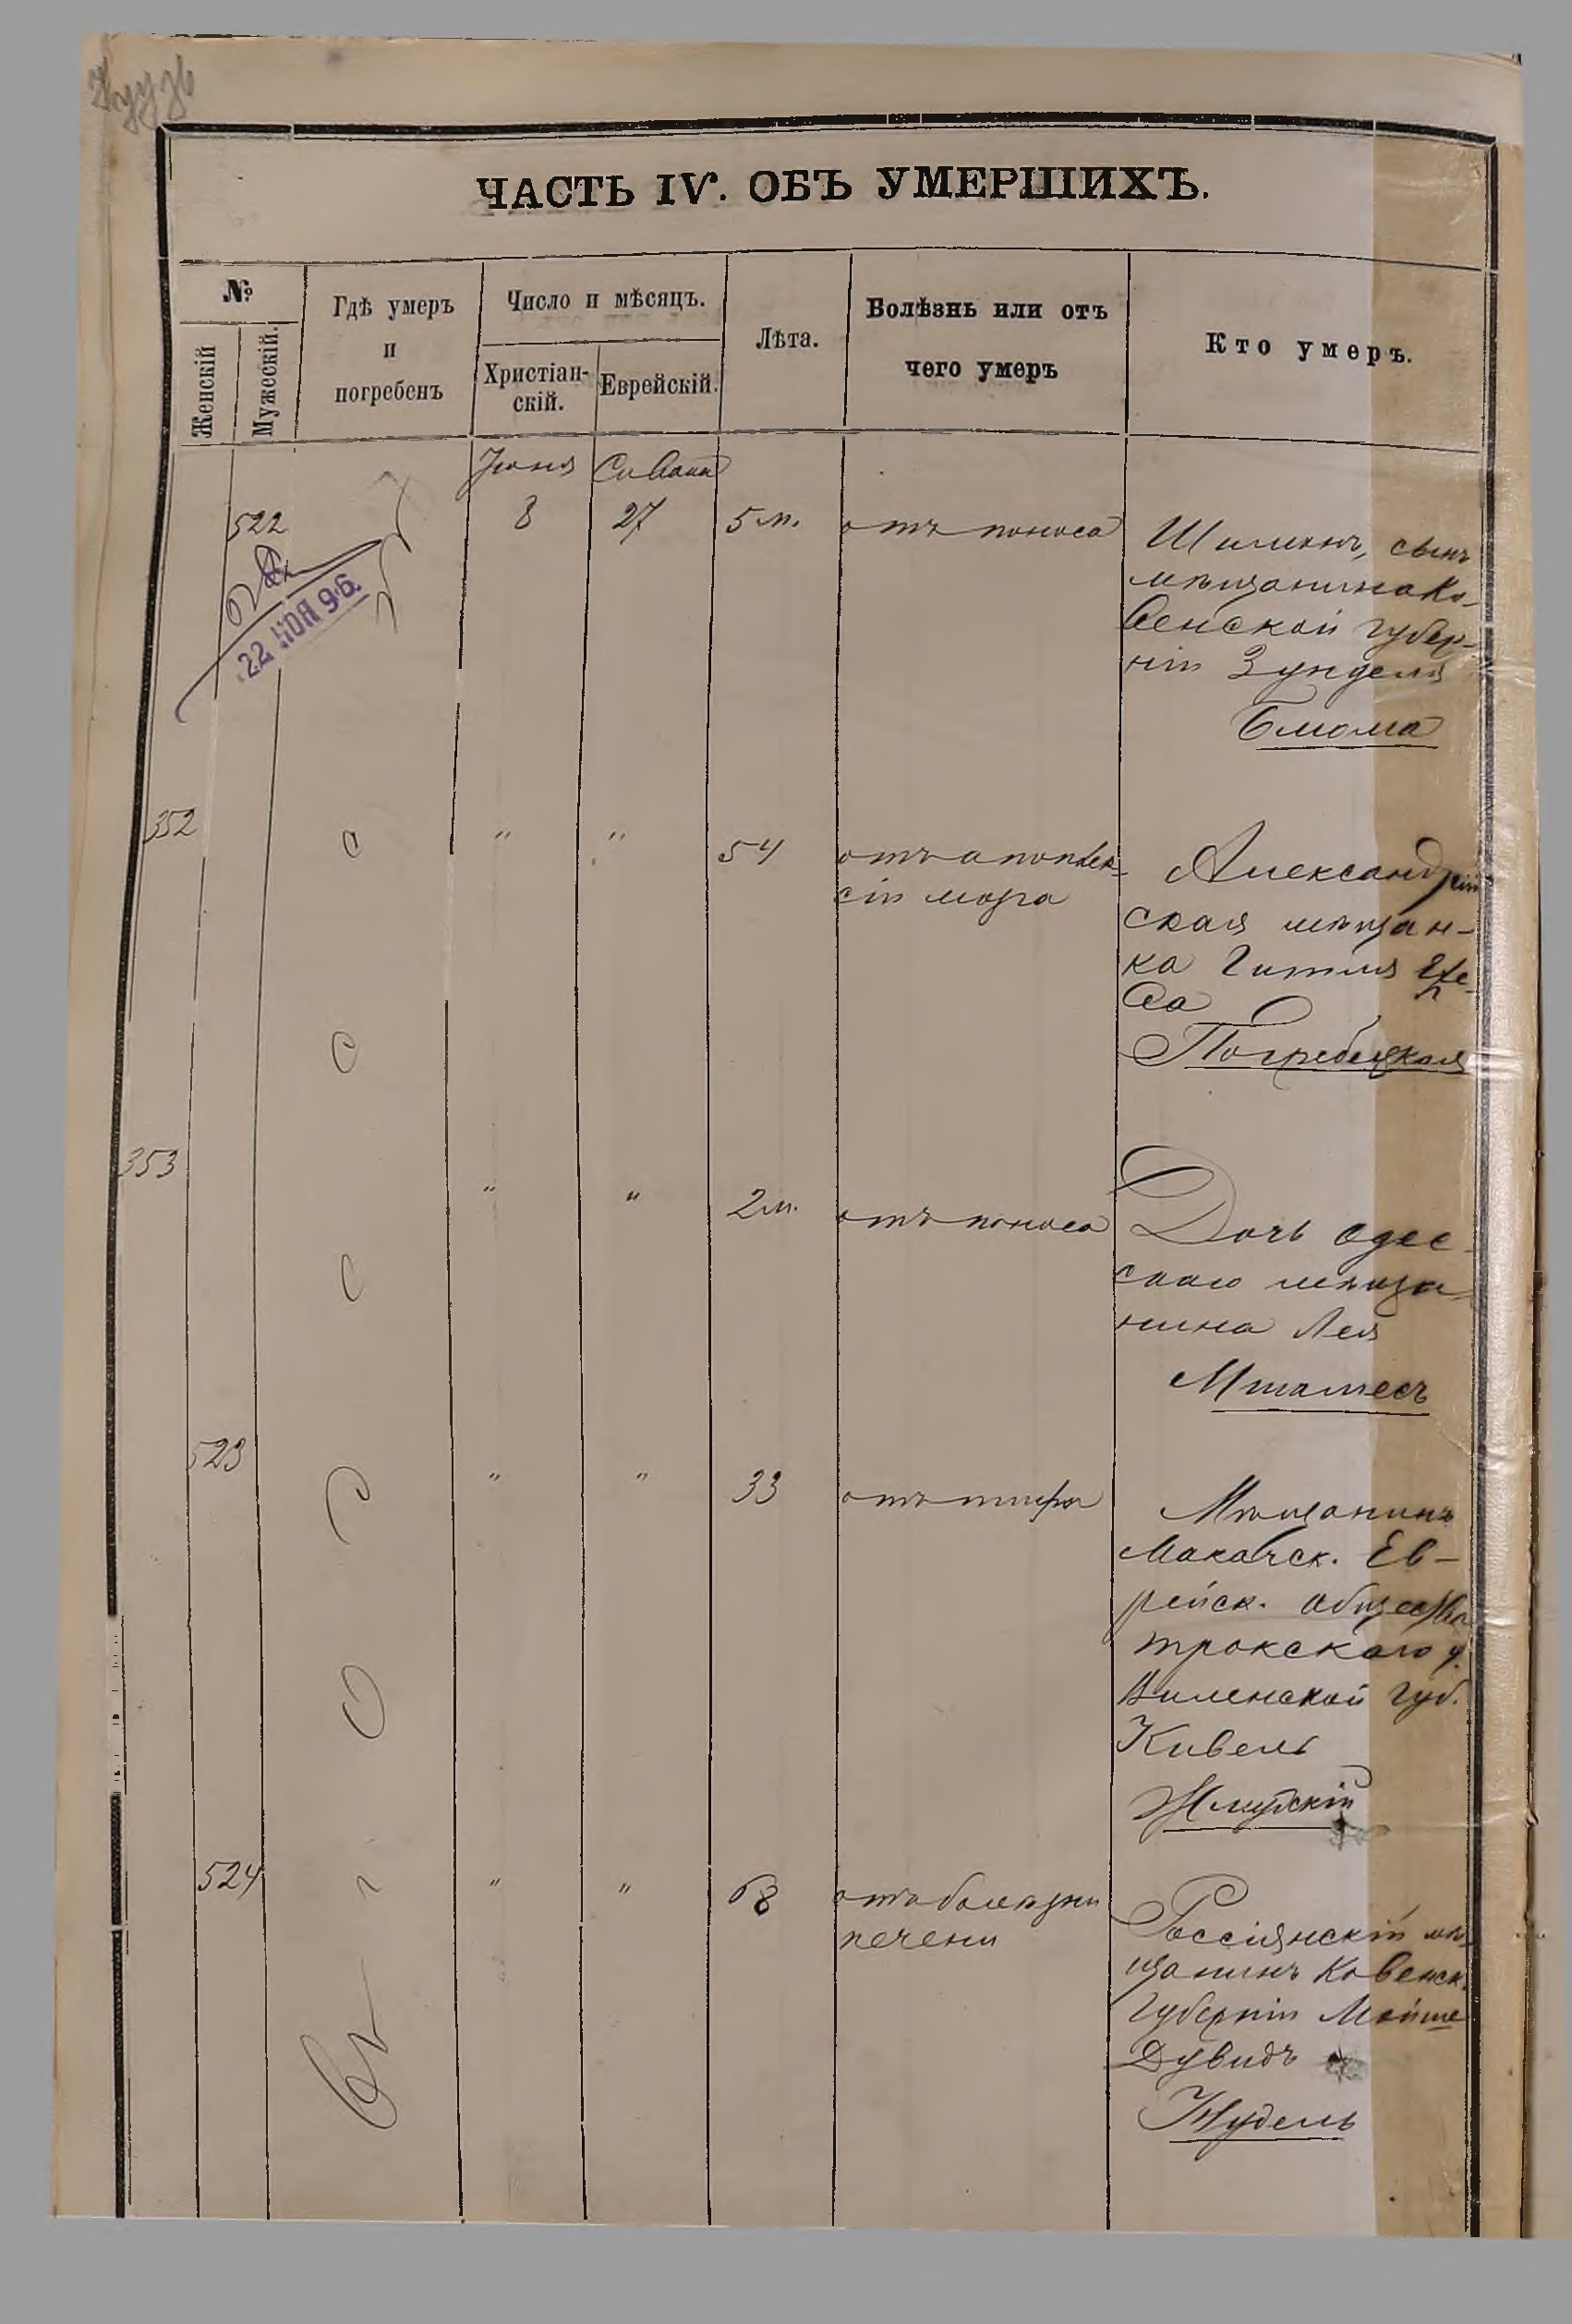 ЧАСТЬ IV. ОБЪ УМЕРШИХЪ.
№
Женскій
Мужескій.
Гдѣ умеръ
и
погребенъ
Число и мѣсяцъ.
Христіан-
скій.
Еврейскій.
Лѣта.
Болѣзнь или отъ
чего умеръ
Кто умеръ.
Іюня Сивана
522 8 27 5 м. отъ поноса Шимонъ, сынъ
мѣщанина Ко-
венской губер-
ніи Зунделя
Блюма
22 НОЯ 96.
Одесса
352 " " 54 отъ апоплек-
сіи мозга
Александрій
ская мѣщан-
ка Гитля Хе-
ва
Погребецкая
353 " " 2 м. отъ поноса Дочь одес-
скаго мѣща-
нина Лея
523 " " 33 отъ тифа Мѣщанинъ
Ев-
рейск. общества
трокскаго у.
Виленской губ.
Кивель
Жмудскій
524 " " 68 отъ болѣзни
печени
Россіянскій мѣ-
щанинъ Ковенск.
губерніи Мойше
Дувидъ
Нудель